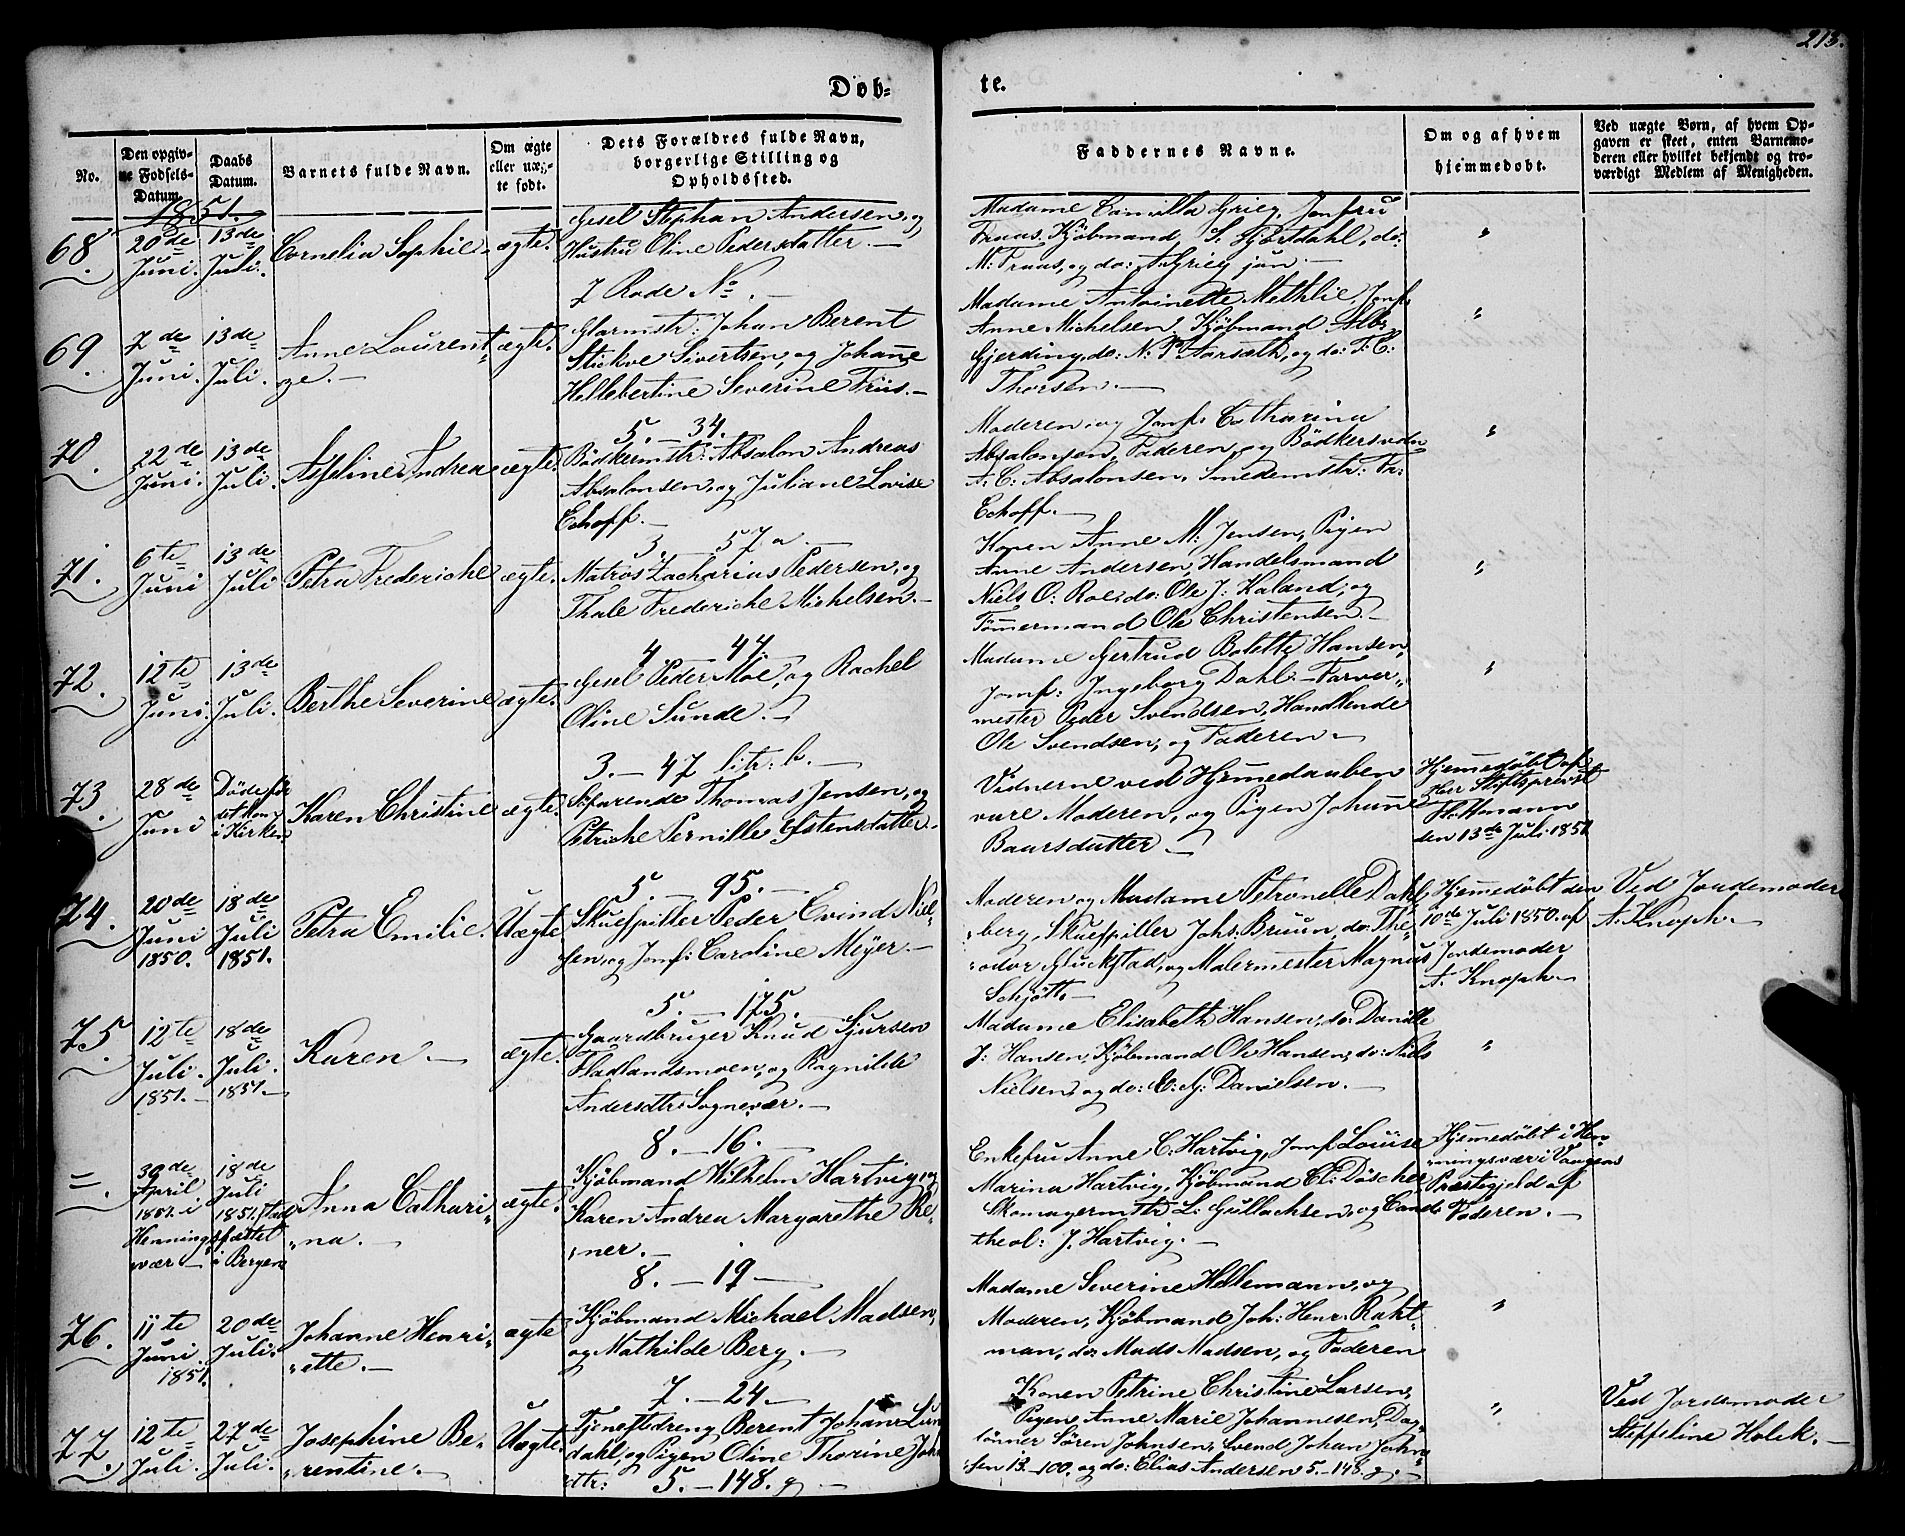 213.
Døb-
te.
No.
Den opgiv-
ne Fødsels-
Datum.
Daabs
Datum.
Barnets fulde Navn.
Om ægte
eller uæg-
te født.
Dets Forældres fulde Navn,
borgerlige Stilling og
Opholdssted.
Faddernes Navne.
Om og af hvem
hjemmedøbt.
Ved uægte Børn, af hvem Op-
gaven er skeet, enten Barnemo-
deren eller hvilket bekjendt og tro-
værdigt Medlem af Menigheden.
1851.
68.
20de
Juni.
13de
Juli.
Cornelia Sophie
ægte.
Gesel Stephan Andersen, og
Hustru Oline Pedersdatter. —
7 Rode No. —
Madame Camilla Grieg, Jomfru
Kjøbmand, S. Hjortdahl, do:
og do: A. Grieg jun. —
"
69.
2de
Juni.
13de
Juli.
Anne Laurent-
ze. —
ægte.
Glarmstr: Johan Berent
Sivertsen, og Johanne
Hellebertine Severine Friis. —
5. — 34.
Madame Antoinette Methlie, Jomf:
Anne Michelsen, Kjøbmand Albr.
Gjerding, do: N: P. Aarsæth, og do: T: C:
Thorsen. —
"
70.
22de
Juni.
13de
Juli.
Asseline Andrea
ægte.
Bødkermstr: Absalon Andreas
Absalonsen, og Juliane Lovise
Echoff. —
3. 57 a. —
Moderen, og Jomf: Catharina
Absalonsen, Faderen, og Bödkersvend
A: C: Absalonsen, Smedemstr: Fr:
Echoff. —
"
71.
6te
Juni
13de
Juli
Petra Frederiche
ægte.
Matros Zacharias Pedersen, og
Thale Frederiche Michelsen. —
4 44.
Konen Anne M: Jensen, Pigen
Anne Andersen, Handelsmand
Niels O: Roe, do: Ole J: Kaland, og
Tømmermand Ole Christensen. —
"
72.
12te
Juni.
13de
Juli.
Berthe Severine
ægte.
Gesel Peder Moe, og Rachel
Oline Sunde. —
3. — 47 litr: b. —
Madame Gertrud Bolette Hansen,
Jomf: Ingeborg Dahl — Farver-
mester Peder Svendsen, Handlende
Ole Svendsen, og Faderen. —
"
73.
28de
Juni
Döde før
det kom
i Kirken
Karen Christine
ægte.
Sefarende Thomas Jensen, og
Petriche Pernille Østensdatter.
5. — 95. —
Vidnerne ved Hjemmedaaben
vare Moderen, og Pigen Johanne
Baarsdatter —
Hjemmedøbt af
Herr Stiftsprovst
den 13de Juli 1851
74.
20de
Juni
1850.
18de
Juli
1851.
Petra Emilie.
Uægte
Skuespiller Peder Evind Niel-
sen, og Jomf: Caroline Meÿer. —
5. — 175.
Moderen og Madame Petronelle Dahl-
berg, Skuespiller Johs: Bruun, do: The-
odor Gluckstad, og Malermester Magnus
Schjött. —
Hjemmedøbt den
10de Juli 1850. af
Jordemoder
A. Knoph. —
Ved Jordemoder
A. Knoph. —
75.
12te
Juli.
1851. —
18de
Juli.
1851. —
Karen. —
ægte.
Gaardbruger Knud Sjursen
Fladlandsmoen, og Ragnilde
Andersdtr: Sognevær. —
8. — 16. —
Madame Elisabeth Hansen, do: Danille
J: Hansen, Kjøbmand Ole Hansen, do: Niels
Nielsen, og do: C: G: Danielsen. —
"
=.
30de
April
1851. i
Hennings-
vær —
18de
Juli
1851. stad-
fæstet
i Bergen
Anna Cathari-
na. —
ægte.
Kjøbmand Wilhelm Hartvig, og
Karen Andrea Margarethe Re-
ner. —
8. — 19 —
Enkefru Anne C. Hartvig, Jomf Louise
Marina Hartvig, Kjøbmand Cl: Döscher,
Skomagermstr L: Gullachsen, og Cand:
theol: J. Hartvig. —
Hjemmedøbt i Hen-
ningsvær i Vaagens
Præstegjeld af
Faderen. —
76.
11te
Juni
1851.
20de
Juli.
Johanne Henri-
ette. —
ægte
Kjøbmand Michael Madsen,
og Mathilde Berg. —
7. — 24 —
Madame Severine Heltemann, og
Moderen, Kjøbmand Joh: Henr: Raht-
man, do: Mads Madsen, og Faderen
"
77.
12te
Juli.
27de
Juli.
Josephine Be-
rentine. —
Uægte
Tjenestedreng Berent Johan Lun-
dahl, og Pigen Oline Thorine Joh-
dtr: 5. — 148. g —
Konen Petrine Christine Larsen,
Pigen Anne Marie Johannesen, Dag-
lönner Sören Johnsen, Svend Johan John-
sen 13. — 100. og do: Elias Andersen 5. — 148. g. —
"
Ved Jordemoder
Steffeline Holck. —